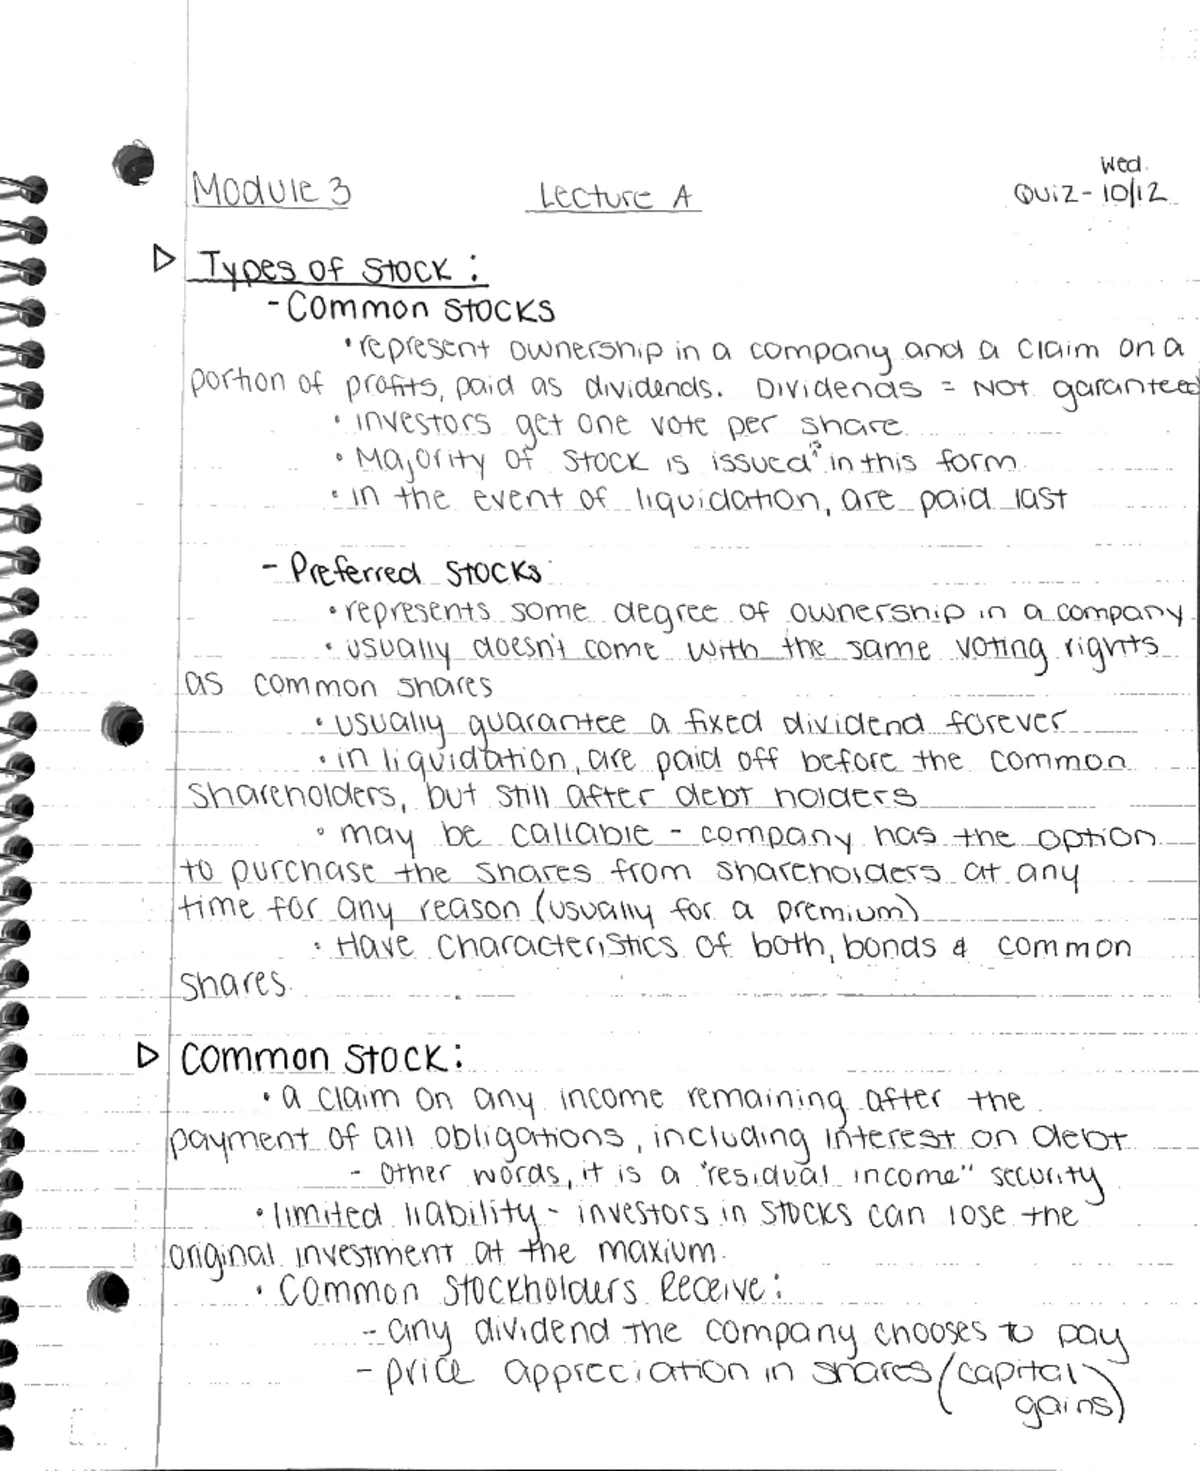 Wed.
Module 3 Lecture A Quiz - 10/12
Types of Stock:
- Common Stocks
• represent ownership in a company and a claim on a
portion of profits, paid as dividends. Dividends = NOT garanteed
• investors get one vote per share
• Majority of stock is issued is in this form
• in the event of liquidation, are paid last
- Preferred Stocks
• represents some degree of ownership in a company
• usually doesn't come with the same voting rights
as common shares
• usually guarantee a fixed dividend forever
• in liquidation, are paid off before the common
shareholders, but still after debt holders
• may be callable - company has the option
to purchase the shares from shareholders at any
time for any reason (usually for a premium)
• Have characteristics of both, bonds & common
shares.
Common Stock:
• a claim on any income remaining after the
payment of all obligations, including interest on debt
- other words, it is a "residual income" security
• limited liability - investors in stocks can lose the
original investment at the maxium.
• Common Stockholders Receive:
- any dividend the company chooses to pay
- price appreciation in shares (capital
gains)